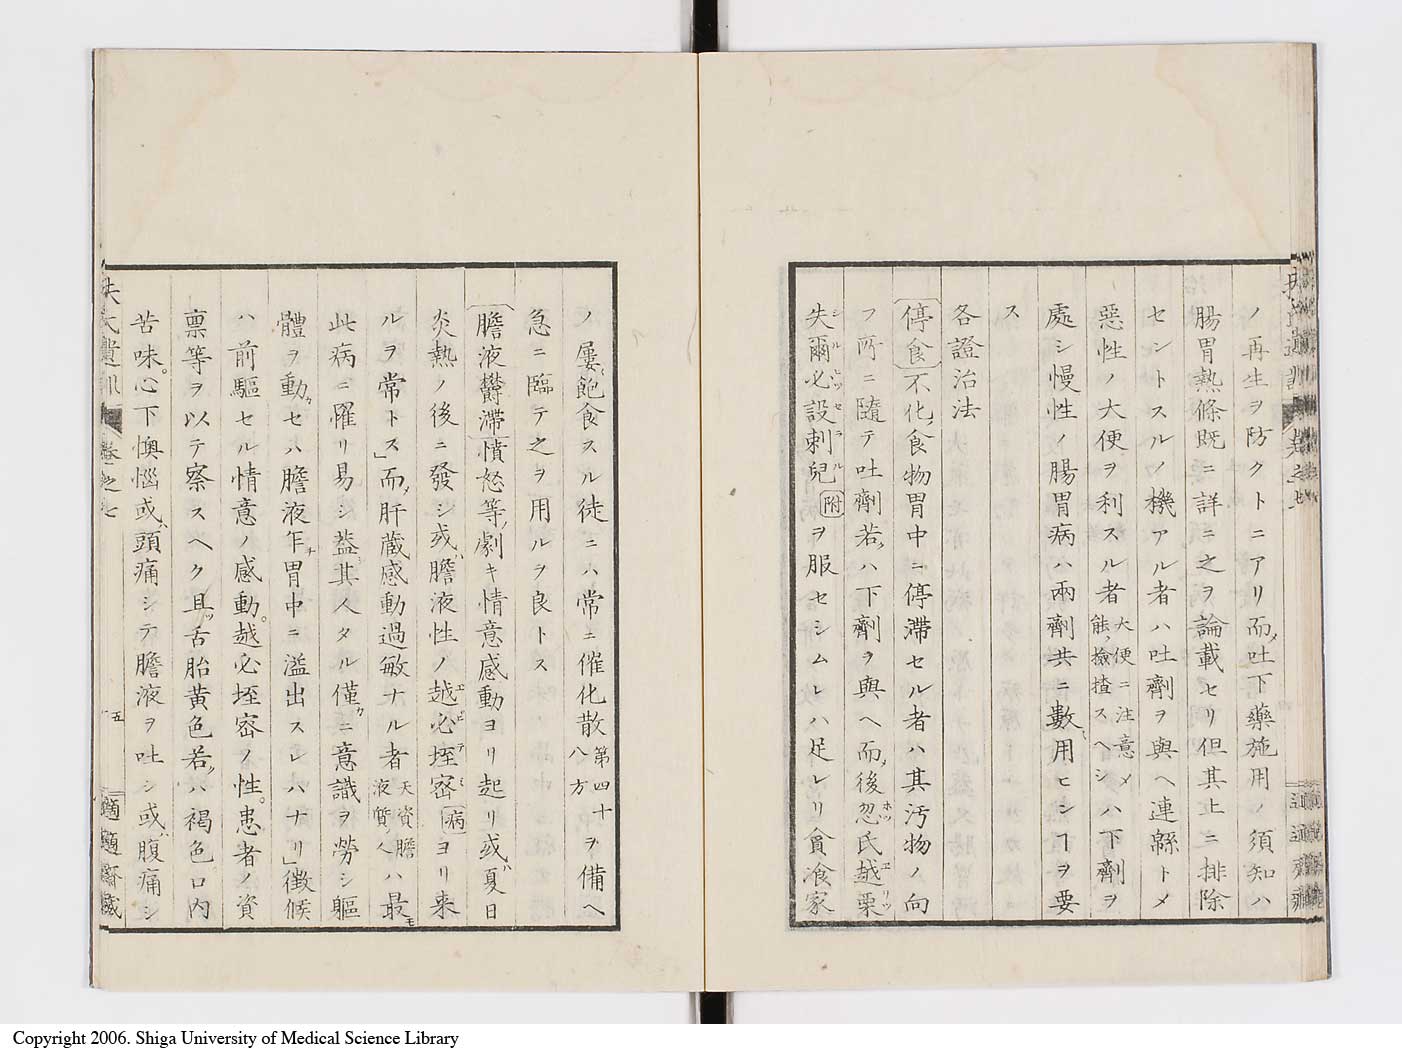 ノ再生ヲ防クトニアリ而メ吐下藥施用ノ須知ハ
腸胃熱條既ニ詳ニ之ヲ論載セリ但其上ニ排除
セントスルノ機アル者ハ吐劑ヲ與ヘ連緜トメ
惡性ノ大便ヲ利スル者大便ニ注意メ能ク檢揸スヘシハ下劑ヲ
處シ慢性ノ腸胃病ハ兩劑共ニ數用ヒシヿヲ要
ス
各證治法
停食不化ノ食物胃中ニ停滯セル者ハ其汚物ノ向
フ所ニ隨テ吐劑若クハ下劑ヲ與ヘ而メ後忽氏越栗
失爾必設刺兒附ヲ服セシムレハ足レリ貪食家
ノ屢飽食スル徒ニハ常ニ催化散第四十八方ヲ備ヘ
急ニ臨テ之ヲ用ルヲ良トス
膽液鬱滯憤怒等ノ劇キ情意感動ヨリ起リ或ハ夏日
炎熱ノ後ニ發シ或ハ膽液性ノ越必垤密病ヨリ來
ルヲ常トス」而メ肝藏感動過敏ナル者天資膽液質ノ人ハ最モ
此病ニ罹リ易シ蓋シ其人タル僅カニ意識ヲ勞シ軀
體ヲ動カセハ膽液乍チ胃中ニ溢出スレハナリ」徵候
ハ前驅セル情意ノ感動。越必垤密ノ性。患者ノ資
稟等ヲ以テ察スヘク且ツ舌胎黃色若クハ褐色口内
苦味。心下懊惱或ハ頭痛シテ膽液ヲ吐シ或ハ腹痛シ
扶氏遺訓 卷之七
五
適適齋藏
Copyright 2006. Shiga University of Medical Science Library